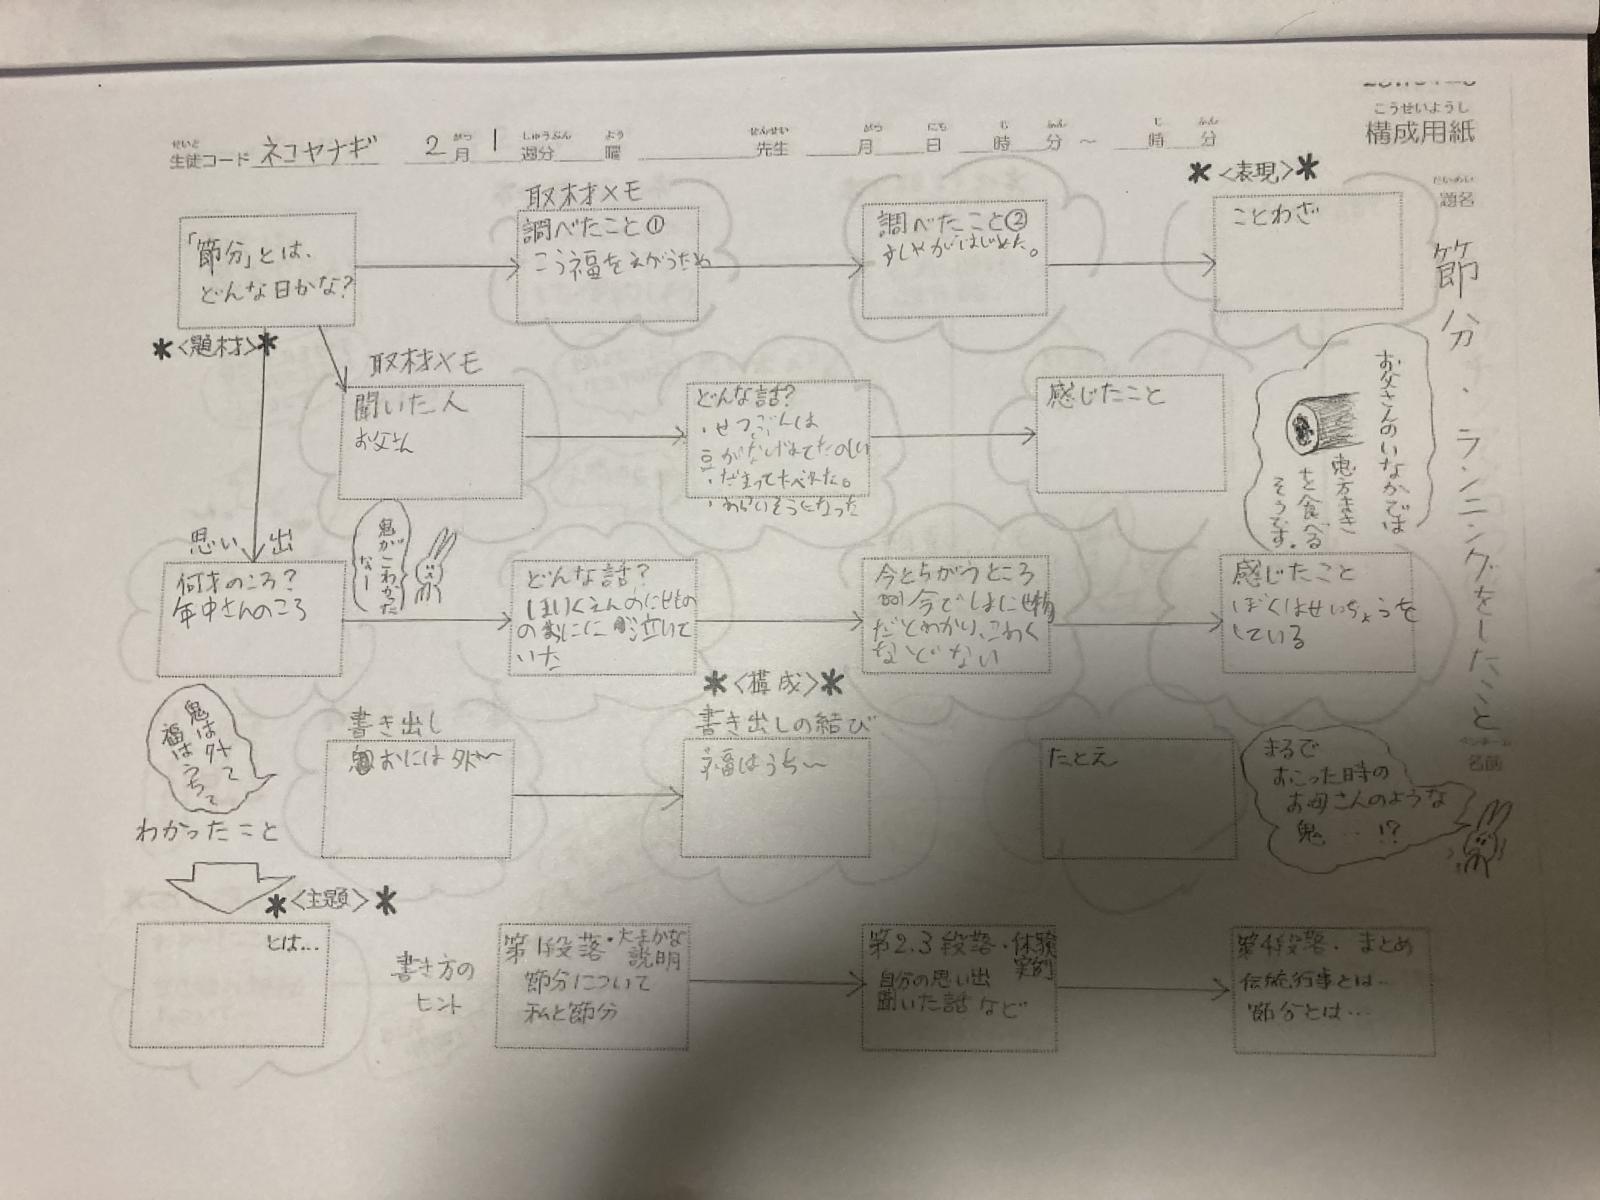 こうせいようし
構成用紙
せいと がつ しゅうぶん よう せんせい がつ にち じ ふん じ ふん
生徒コード ネコヤナギ 2月 1週分 曜 先生 月 日 時 分 ～ 時 分
だいめい
題名
節分・ランニングをしたこと
ペンネーム
名前
＊〈表現〉＊
「節分」とは、
どんな日かな?
＊〈題材〉＊
取材メモ
調べたこと①
こう福をねがうため
調べたこと②
すしやがはじめた。
ことわざ
取材メモ
聞いた人
お父さん
どんな話?
・せつぶんは
豆がなげれてたのしい
・だまってたべれた。
・わらいそうになった
感じたこと
お父さんのいなかでは
恵方まき
を食べる
そうです。
思い出
何才のころ?
年中さんのころ
鬼がこわかった
なー
どんな話?
ほいくえんのにせもの
のおにに泣いて
いた
今とちがうところ
今でしはに
だとわかり、こわく
ない
感じたこと
ぼくはせいちょうを
している
＊〈構成〉＊
鬼は外って
福はうちって
書き出し
おには外～
書き出しの結び
福はうち～
たとえ
まるで
おこった時の
お母さんのような
鬼…!?
わかったこと
＊〈主題〉＊
とは…
書き方の
ヒント
第1段落・大まかな
説明
節分について
私と節分
第2.3段落・体験
実例
自分の思い出
聞いた話など
第4段落・まとめ
伝統行事とは…
節分とは…